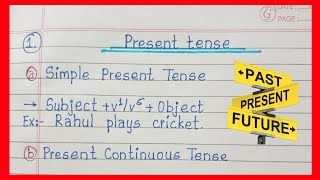 DATE:
PAGE:
1. Present tense
a Simple Present Tense
→ Subject + v¹/v⁵ + Object
Ex:- Rahul plays cricket.
b Present Continuous Tense
PAST
PRESENT
FUTURE